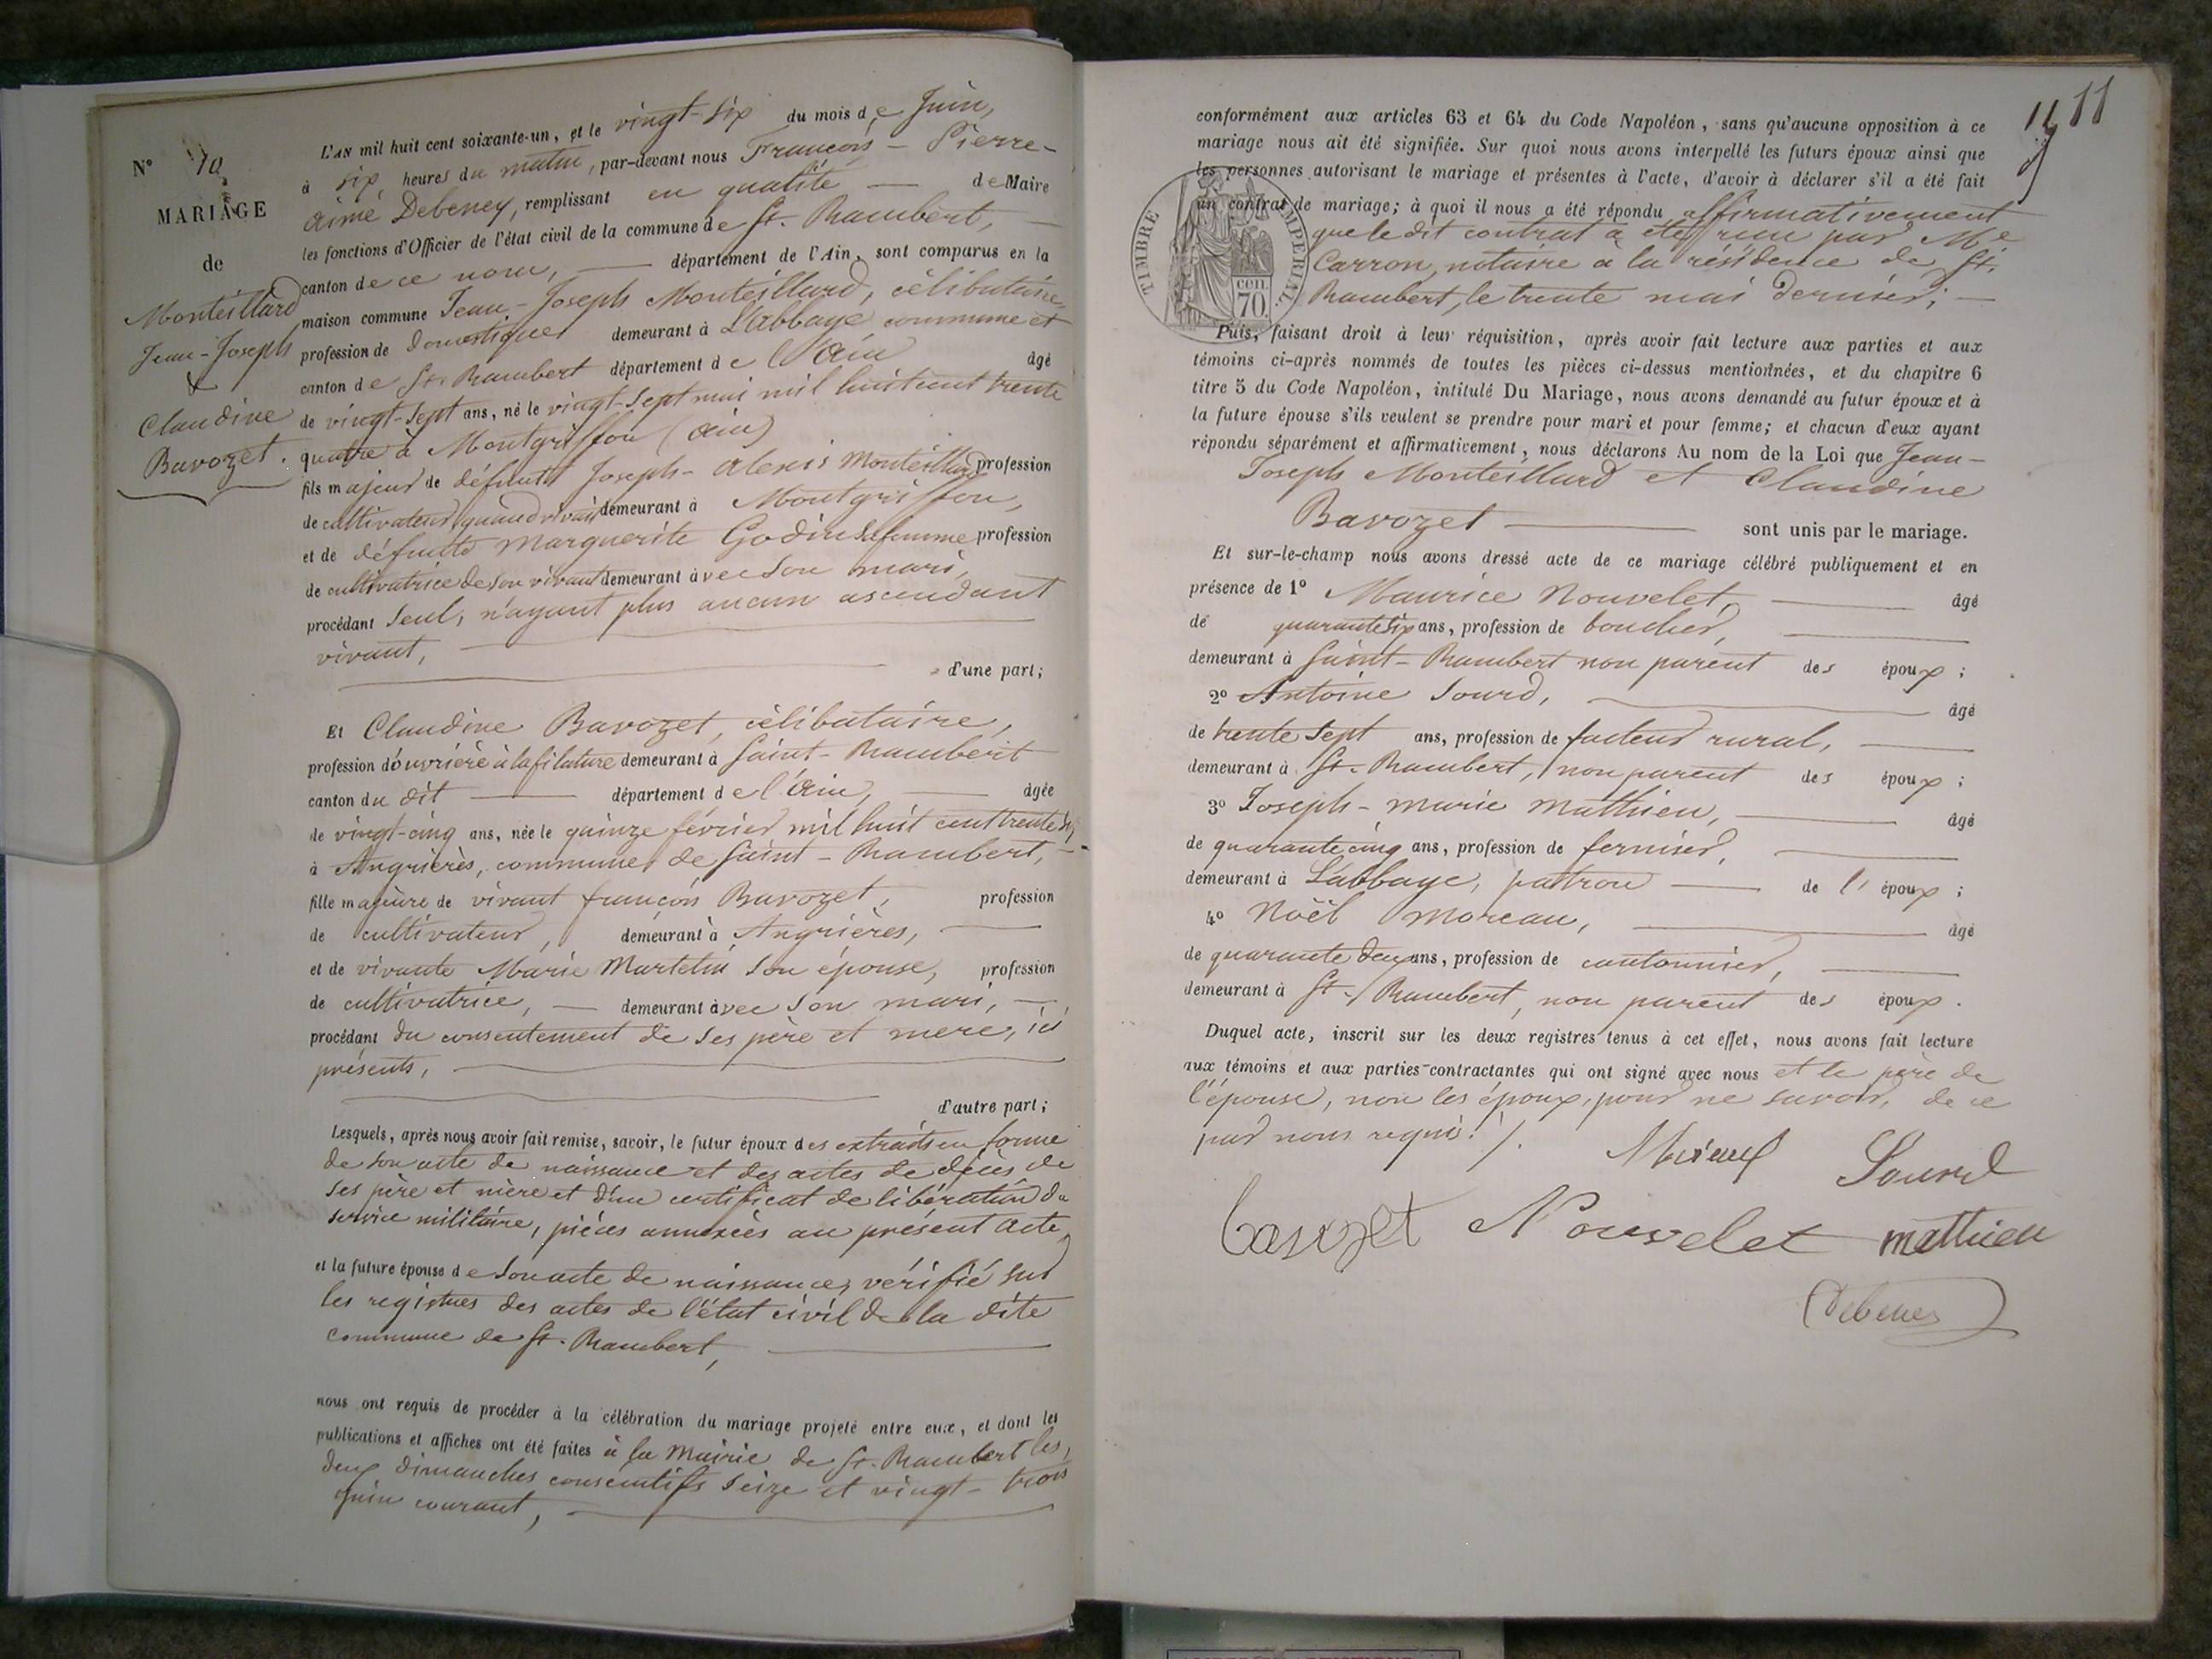 N° 10
MARIAGE
de
Monteillard
Jean-Joseph
&
Claudine
Bavozet.
L'AN mil huit cent soixante-un, et le vingt-six du mois de Juin,
à six heures du matin, par-devant nous François-Pierre-
aimé Debeney, remplissant en qualité de Maire
les fonctions d'Officier de l'état civil de la commune de St. Rambert,
canton de ce nom, département de l'Ain, sont comparus en la
maison commune Jean-Joseph Monteillard, célibataire,
profession de domestique demeurant à L'abbaye commune et
canton de St. Rambert département de l'ain âgé
de vingt-sept ans, né le vingt-sept mai mil huit cent trente
quatre à Montgriffon (ain)
fils majeur de défunt Joseph-alexis Monteillard profession
de cultivateur quand vivait demeurant à Montgriffon,
et de défunte Marguerite Godin sa femme profession
de cultivatrice de son vivant demeurant avec son mari,
procédant seul, n'ayant plus aucun ascendant
vivant,
d'une part;
Et Claudine Bavozet, célibataire,
profession d'ouvrière à la filature demeurant à Saint-Rambert
canton du dit département de l'ain, âgée
de vingt-cinq ans, née le quinze février mil huit cent trente six
à Angrières, commune de Saint-Rambert,
fille majeure de vivant françois Bavozet, profession
de cultivateur, demeurant à Angrières,
et de vivante Marie Martelin son épouse, profession
de cultivatrice, demeurant avec son mari,
procédant du consentement de ses père et mère, ici
présents,
d'autre part;
Lesquels, après nous avoir fait remise, savoir, le futur époux des extraits en forme
de son acte de naissance et des actes de décès de
ses père et mère et d'un certificat de libération du
service militaire, pièces annexées au présent acte,
et la future épouse de son acte de naissance, vérifié sur
les registres des actes de l'état civil de la dite
commune de St. Rambert,
nous ont requis de procéder à la célébration du mariage projeté entre eux, et dont les
publications et affiches ont été faites à la Mairie de St. Rambert les
deux dimanches consécutifs seize et vingt-trois
Juin courant,
11
conformément aux articles 63 et 64 du Code Napoléon, sans qu'aucune opposition à ce
mariage nous ait été signifiée. Sur quoi nous avons interpellé les futurs époux ainsi que
les personnes autorisant le mariage et présentes à l'acte, d'avoir à déclarer s'il a été fait
un contrat de mariage; à quoi il nous a été répondu affirmativement
que le dit contrat a été reçu par Me
Carron, notaire à la résidence de St.
Rambert, le trente mai dernier;
TIMBRE IMPERIAL
70 cen.
Puis, faisant droit à leur réquisition, après avoir fait lecture aux parties et aux
témoins ci-après nommés de toutes les pièces ci-dessus mentionnées, et du chapitre 6
titre 5 du Code Napoléon, intitulé Du Mariage, nous avons demandé au futur époux et à
la future épouse s'ils veulent se prendre pour mari et pour femme; et chacun d'eux ayant
répondu séparément et affirmativement, nous déclarons Au nom de la Loi que Jean-
Joseph Monteillard et Claudine
Bavozet sont unis par le mariage.
Et sur-le-champ nous avons dressé acte de ce mariage célébré publiquement et en
présence de 1° Maurice Nouvelet, âgé
de quarante six ans, profession de boucher,
demeurant à Saint-Rambert non parent des époux;
2° Antoine Sourd, âgé
de trente sept ans, profession de facteur rural,
demeurant à St-Rambert, non parent des époux;
3° Joseph-marie Mathieu, âgé
de quarante cinq ans, profession de fermier,
demeurant à L'abbaye, patron de l'époux;
4° Noël Moreau, âgé
de quarante deux ans, profession de cantonnier,
demeurant à St. Rambert, non parent des époux.
Duquel acte, inscrit sur les deux registres tenus à cet effet, nous avons fait lecture
aux témoins et aux parties contractantes qui ont signé avec nous et le père de
l'épouse, non les époux, pour ne savoir, de ce
par nous requis./.
Sourd
Bavozet Nouvelet mathieu
Debeney